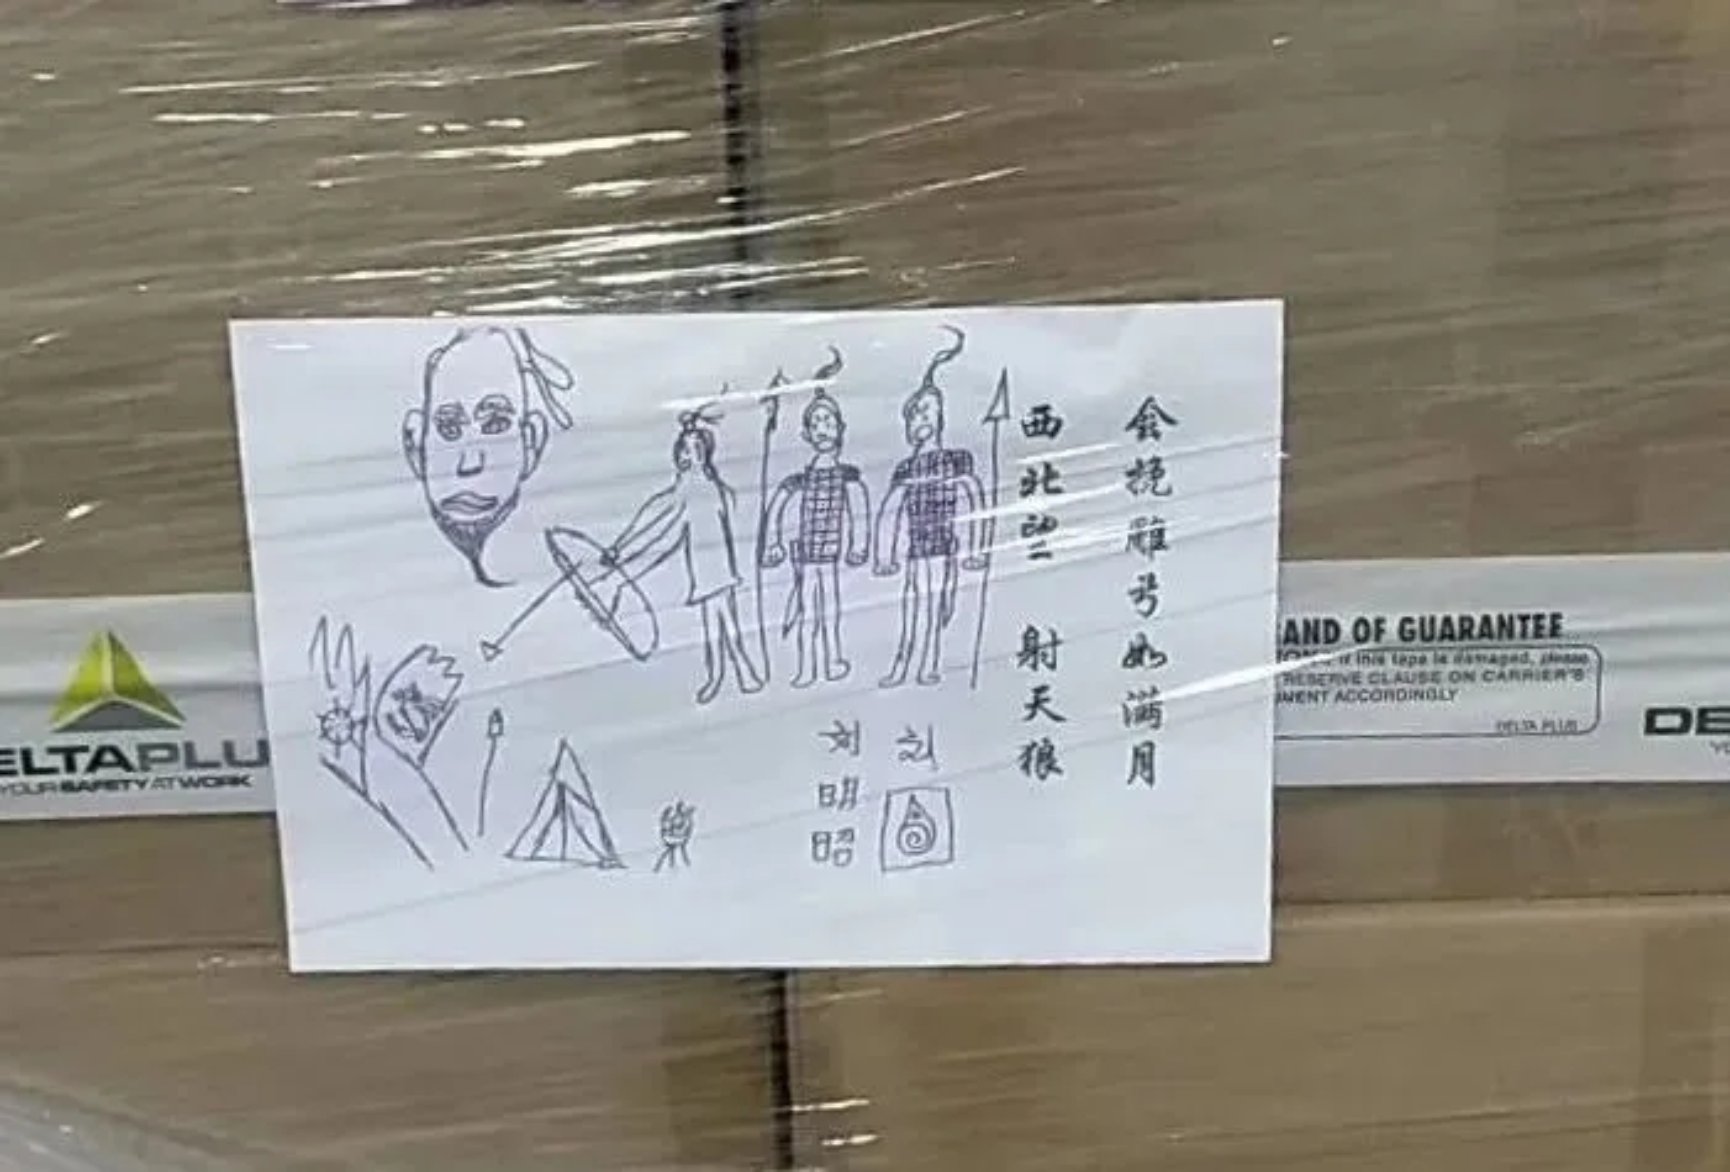 会挽雕弓如满月
西北望 射天狼
刘
刘明昭
DELTAPLU
YOUR SAFETY AT WORK
AND OF GUARANTEE
If this tape is damaged, please
RESERVE CLAUSE ON CARRIER'S
MENT ACCORDINGLY
DELTA PLUS
DE